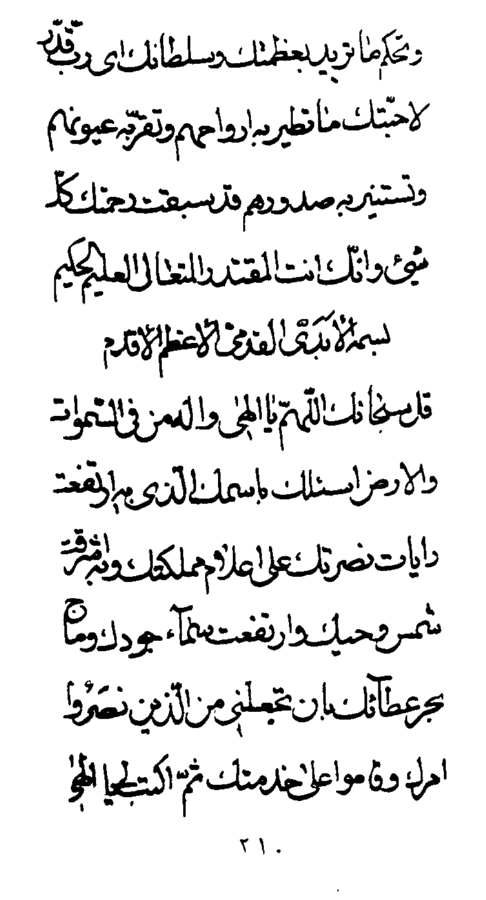 وتحكم ما تريد بعظمتك وسلطانك اى ربّ قدّر
لاحبّتك ما تطير به ارواحهم وتقرّ به عيونهم
وتستنير به صدورهم قد سبقت رحمتك كلّ
شئ وانّك انت المقتدر المتعالى العليم الحكيم
بسمه الأبدىّ القدمىّ الاعظم الاقدم
قل سبحانك اللّهمّ يا الهى واله من فى السّموات
والارض اسئلك باسمك الّذى به ارتفعت
رايات نصرتك على اعلام مملكتك وبه اشرقت
شمس وحيك وارتفعت سمآء جودك وماج
بحر عطآئك بان تجعلنى من الّذين نصروا
امرك وقاموا على خدمتك ثمّ اكتب لى يا الهى
٢١٠